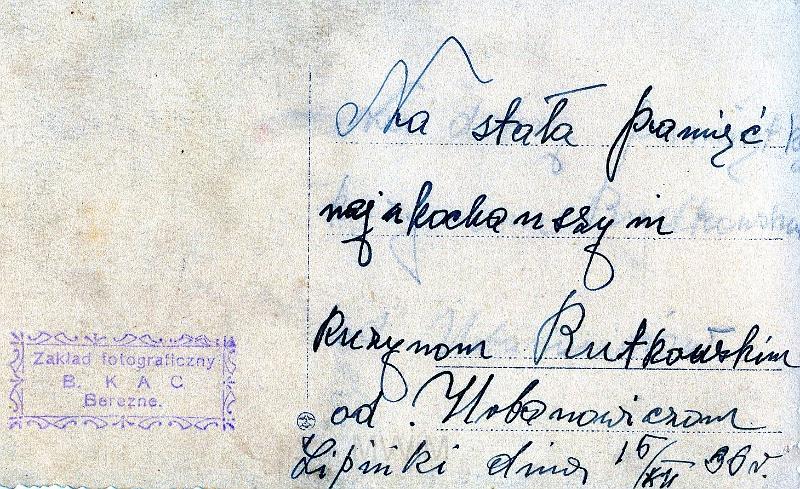 Na stała pamięć
najukochanszym
kuzynom Rutkowskim
od Urbanowiczom
Lipinki dnia 15/XII 36 r.
Zakład fotograficzny
B. KAC
Berezne.